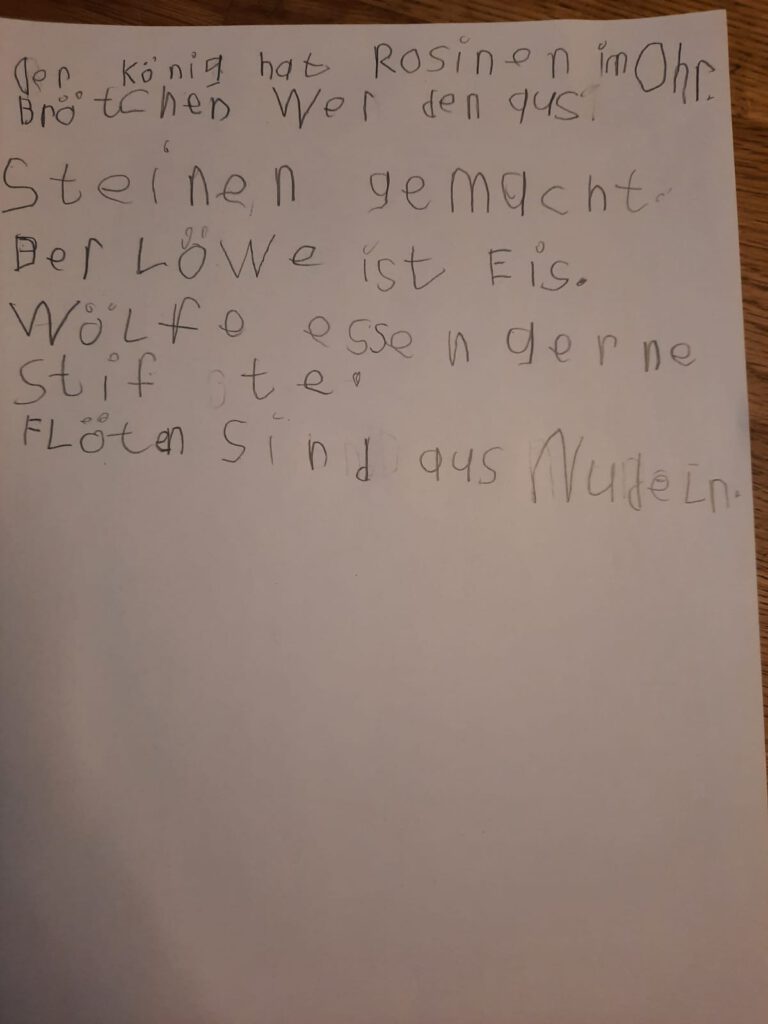 Der König hat Rosinen im Ohr.
Brötchen Wer den aus
Steinen gemacht.
Der LÖWe ist Eis.
WöLfe essen gerne
Stif te.
FLöten Sind aus Nudeln.